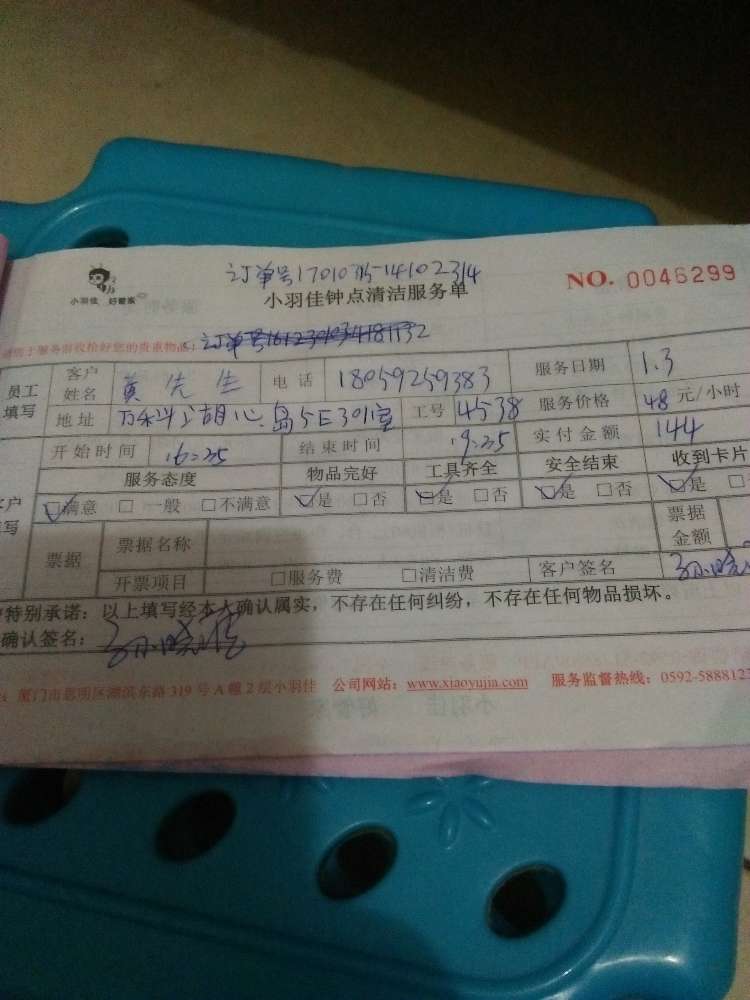 订单号170103-14102314
小羽佳 好管家
小羽佳钟点清洁服务单
NO. 0046299
服务前收拾好您的贵重物品:
员工填写 客户姓名 黄先生 电话 18059259383 服务日期 1.3
地址 万科湖心岛5E301室 工号 4538 服务价格 48 元/小时
开始时间 16:25 结束时间 19:25 实付金额 144
服务态度 物品完好 工具齐全 安全结束 收到卡片
☑满意 □一般 □不满意 ☑是 □否 ☑是 □否 ☑是 □否 ☑是 □
票据 票据名称 票据金额
开票项目 □服务费 □清洁费 客户签名
特别承诺:以上填写经本人确认属实,不存在任何纠纷,不存在任何物品损坏。
确认签名:
厦门市思明区湖滨东路319号A幢2层小羽佳 公司网站:www.xiaoyujia.com 服务监督热线:0592-5888123